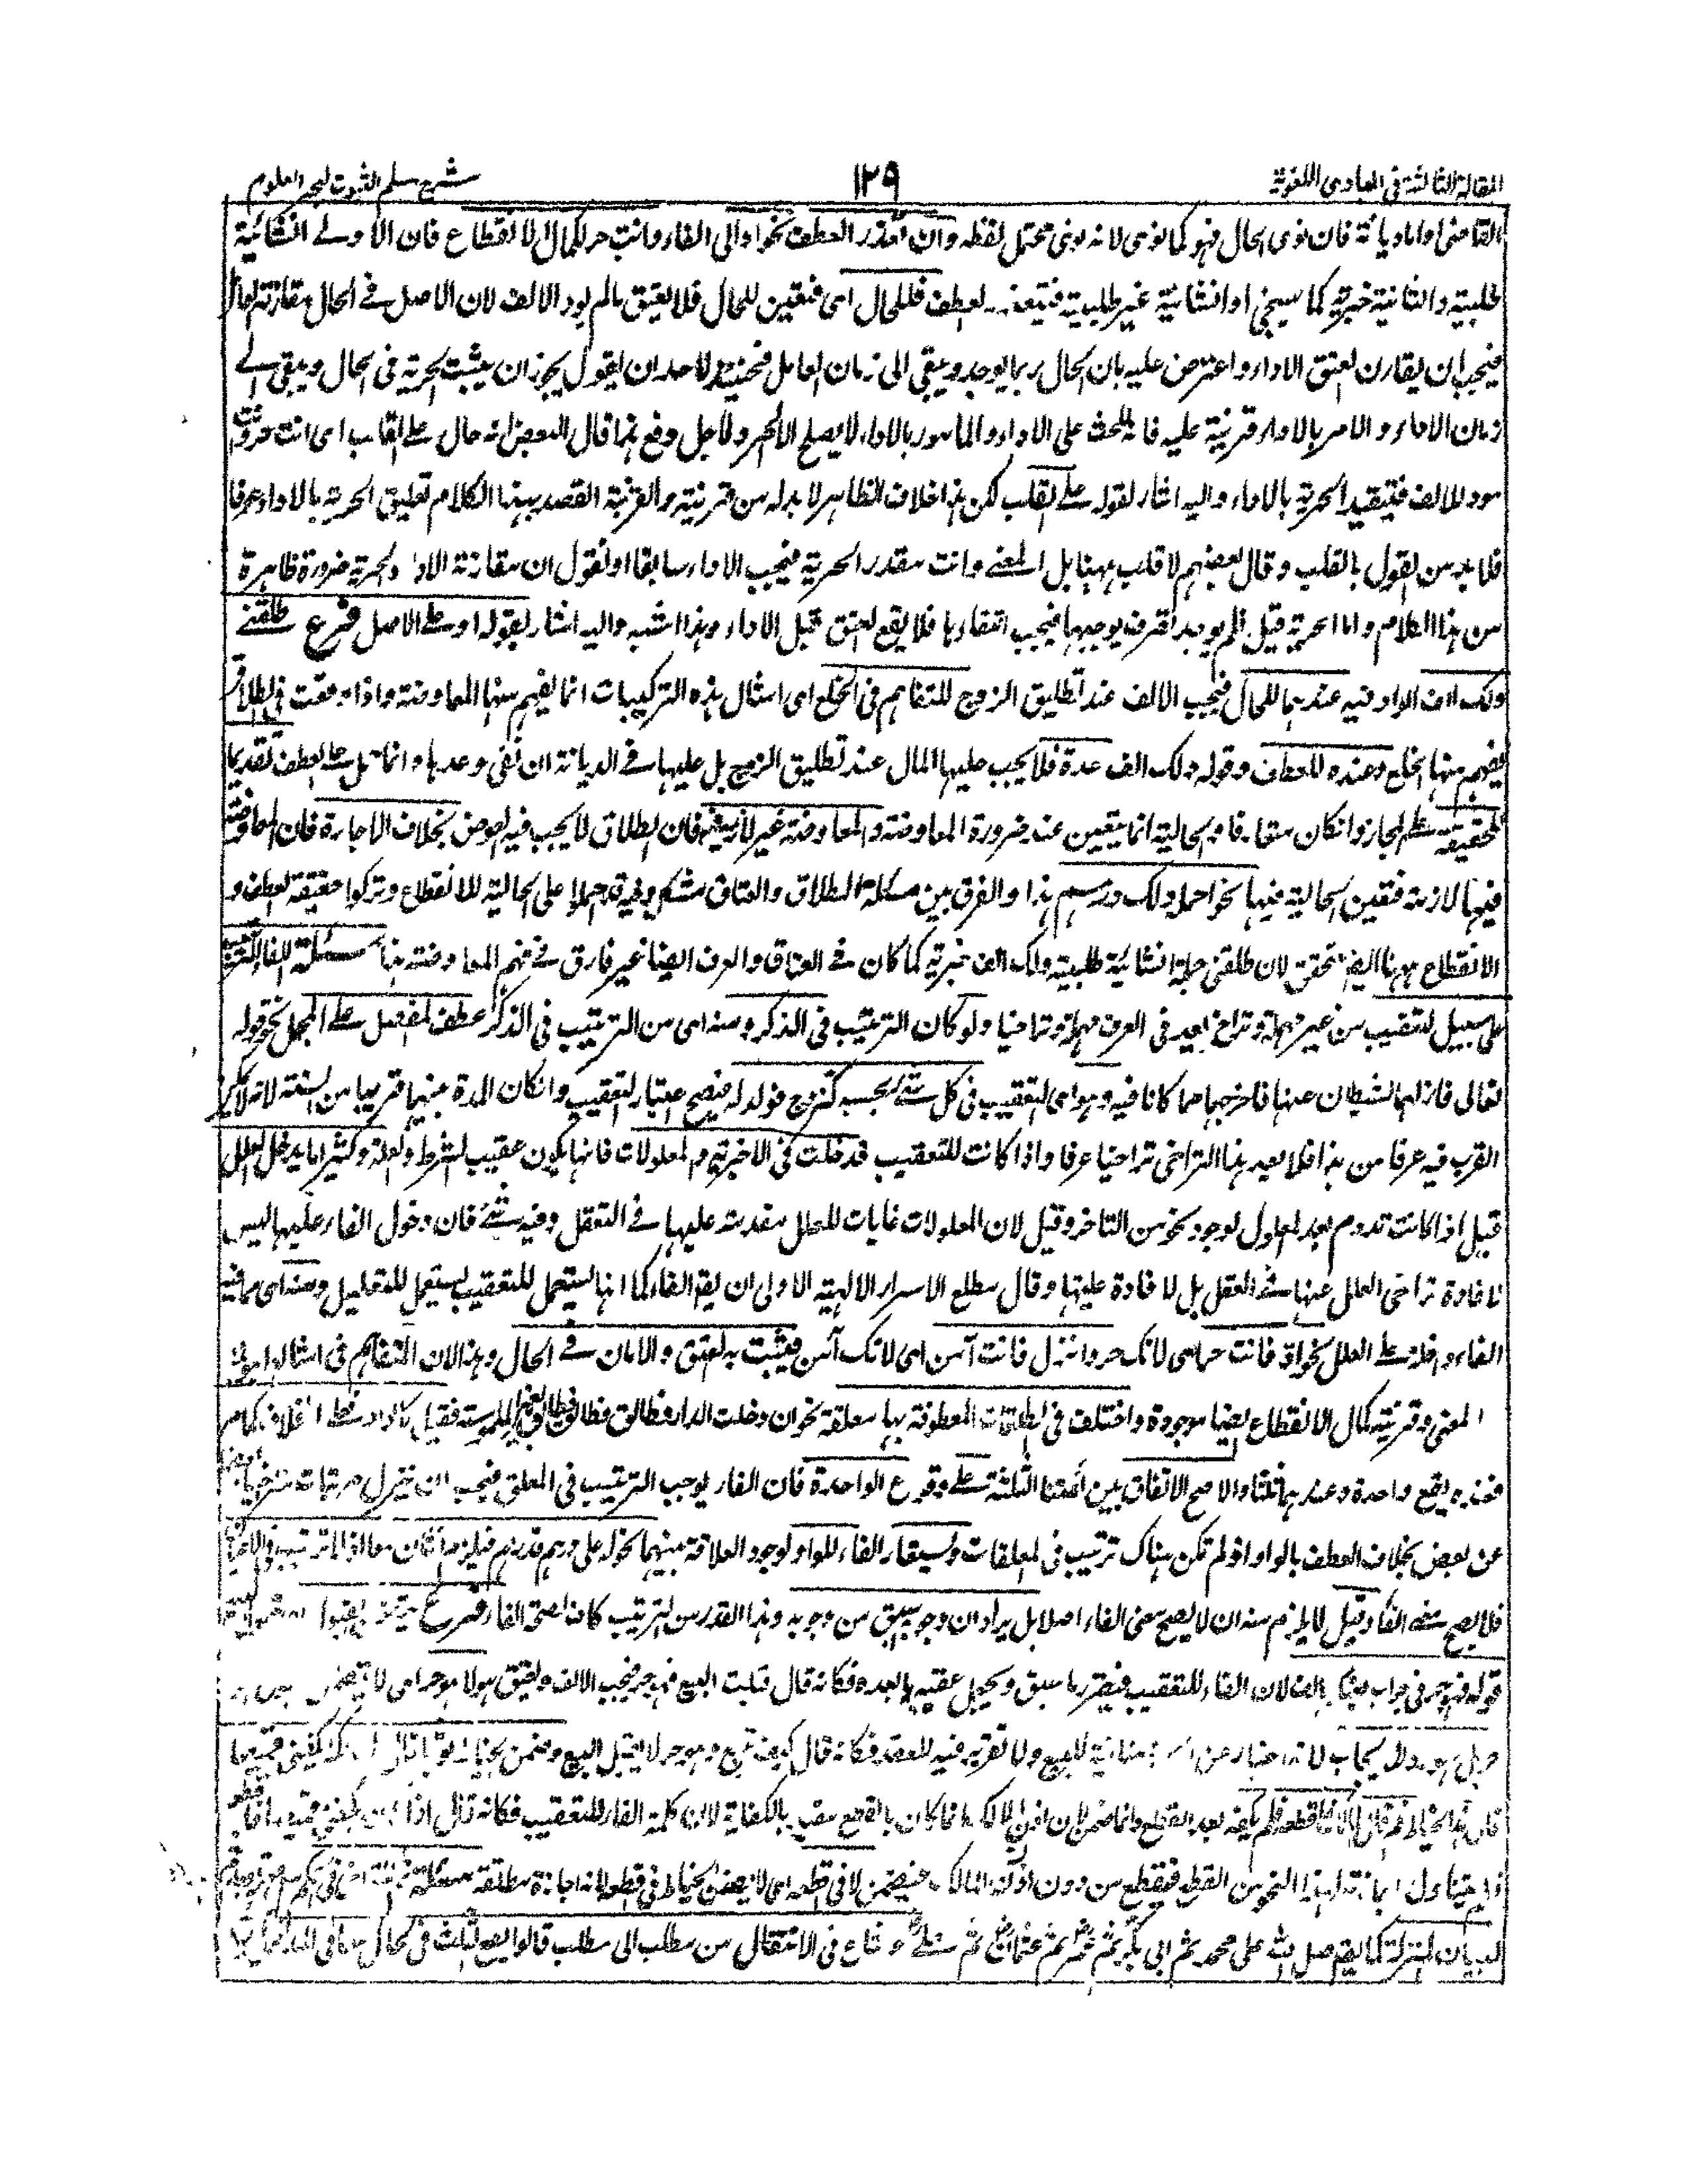 المقالة الثالثة فى المبادى اللغوية
١٢٩
شرح مسلم الثبوت لبحر العلوم
القاضى واما ديانة فان نوى الحال فهو كما نوى لانه نوى محتمل لفظه وان تعذر العطف نحو اد الى الفاء وانت حر لكمال الانقطاع فان الاولى انشائية
طلبية والثانية خبرية كما سيجئ او انشائية غير طلبية فتعذر العطف فللحال اى فتعين للحال فلا يعتق مالم يود الالف لان الاصل فى الحال مقارنته العامل
فيجب ان يقارن العتق الاداء واعترض عليه بان الحال ربما يوجد ويبقى الى زمان العامل فحينئذ لاحد ان يقول يجوز ان يثبت الحرية فى الحال ويبقى الى
زمان الاداء والامر بالاداء قرينة عليه فانه للحث على الاداء والمامور بالاداء لا يصلح الا الحر ولاجل دفع هذا قال البعض انه حال على القلب اى انت حر وانت
مود للالف فيتقيد الحرية بالاداء واليه اشار لقوله على القلب لكن هذا خلاف الظاهر لا بد له من قرينة والقرينة القصد بهذا الكلام تعليق الحرية بالاداء عرفا
فلا بد من القول بالقلب وقال بعضهم لا قلب ههنا بل المعنى وانت مقدر الحرية فيجب الاداء سابقا او نقول ان مقارنة الاداء والحرية ضرورة ظاهرة
من هذا الكلام واما الحرية قبل فلم يوجد تصرف يوجبها فيجب انتفاءها فلا يقع العتق قبل الاداء وهذا اشبه واليه اشار بقوله او على الاصل فرع طلقنى
ولك الف الواو فيه عندهما للحال فيجب الالف عند تطليق الزوج للتفاهم فى الخلع اى امثال هذه التركيبات انما يفهم منها المعاوضة واذا وقعت فى الطلاق
يفهم منها الخلع وعنده للعطف وقوله ولك الف عدة فلا يجب عليها المال عند تطليق الزوج بل عليها فى الديانة ان تفى وعدها وانما حمل على العطف تقديما
للحقيقة على المجاز وان كان متعارفا والحالية انما يتعين عند ضرورة المعاوضة والمعاوضة غير لازمة فيها فان الطلاق لا يجب فيه العوض بخلاف الاجارة فان المعاوضة
فيها لازمة فتعين الحالية فيها نحو احمله ولك درهم هذا والفرق بين مسئلة الطلاق والعتاق مشكل وفيه حملوا على الحالية للانقطاع وتركوا حقيقة العطف و
الانقطاع ههنا ايضا تحقق لان طلقنى جملة انشائية طلبية ولك الف خبرية كما كان فى العتاق والعرف ايضا غير فارق فى فهم المعاوضة هنا مسئلة الفاء للترتيب
على سبيل التعقيب من غير مهلة وتراخ يعد فى العرف مهلة وتراخيا ولو كان الترتيب فى الذكر ومنه اى من الترتيب فى الذكر عطف المفصل على المجمل نحو قوله
تعالى فازلهما الشيطان عنها فاخرجهما مما كانا فيه وهو اى التعقيب فى كل شئ بحسبه كتزوج فولد له فيصح اعتبار التعقيب وان كان المدة بينهما قريبا من السنة لانه لا يمكن
القرب فيه عرفا من هذا فلا يعد هذا التراخى تراخيا عرفا واذا كانت للتعقيب فدخلت فى الاجزية والمعلولات فانها يكون عقيب الشرط والعلة وكثيرا ما يدخل العلل
قبل اذا كانت تدوم بعد المعلول لوجود نحو من التاخر وقيل لان المعلولات غايات للعلل مقدمة عليها فى التعقل وفيه شئ فان دخول الفاء عليها ليس
لافادة تراخى العلل عنها فى العقل بل لافادة عليتها وقال مطلع الاسرار الالهية الاولى ان يقال الفاء كما انها يستعمل للتعقيب يستعمل للتعليل ومنه اى مما فيه
الفاء داخلة على العلل نحو اد فانت حر اى لانك حر وانزل فانت آمن اى لانك آمن فيثبت به العتق والامان فى الحال وهذا لان التفاهم فى امثاله هذا
المعنى وقرينة كمال الانقطاع ايضا موجودة واختلف فى الطلقات المعطوفة بها معلقة نحو ان دخلت الدار فطالق فطالق فطالق لغير الملموسة فقيل كالواو على الخلاف كما مر
فعنده يقع واحدة وعندهما ثلثا والاصح الاتفاق بين ائمتنا الثلثة على وقوع الواحدة فان الفاء يوجب الترتيب فى المعلق فيجب ان ينزل مرتبات متراخيا بعضها
عن بعض بخلاف العطف بالواو اذ لم تكن هناك ترتيب فى المعلقات ويستعار الفاء للواو لوجود العلاقة بينهما نحو له على درهم فدرهم فيلزمه اثنان معا اذ لا ترتيب فى الاعيان
فلا يصح معنى الفاء وقيل لا يلزم منه ان لا يصح معنى الفاء اصلا بل يراد ان وجوبه سبق من وجوبه وهذا القدر من الترتيب كاف لصحة الفاء فرع
قوله فهو حر فى جواب بعتكه بالف لان الفاء للتعقيب فيتقرر ما سبق ويجعل عقيبه ما بعده فكانه قال قبلت البيع فهو حر فيجب الالف ويعتق هو لا وهو حر اى لا يتضمن
بل هو رد لا يجاب لانه اخبار عن منافية للبيع ولا تقرير فيه للعقد فكانه قال كيف تبيع وهو حر لا يقبل البيع وضمن الخياط ثوبا قال
فاقطعه فلم يكفه بعد القطع وانما ضمن لان اذن المالك انما كان بالقطع مقيدا بالكفاية لان كلمة الفاء للتعقيب فكانه قال اذا
لهذا النحو من القطع فيقطع من دون اذن المالك فيضمن لا فى اقطعه اى لا يضمن الخياط فى قطعه لانه اجازة مطلقة مسئلة
البيان المنزلة كما يقم صل الله على محمد ثم ابى بكر ثم عمر ثم عثمان ثم على وشاع فى الانتقال من مطلب الى مطلب قالوا